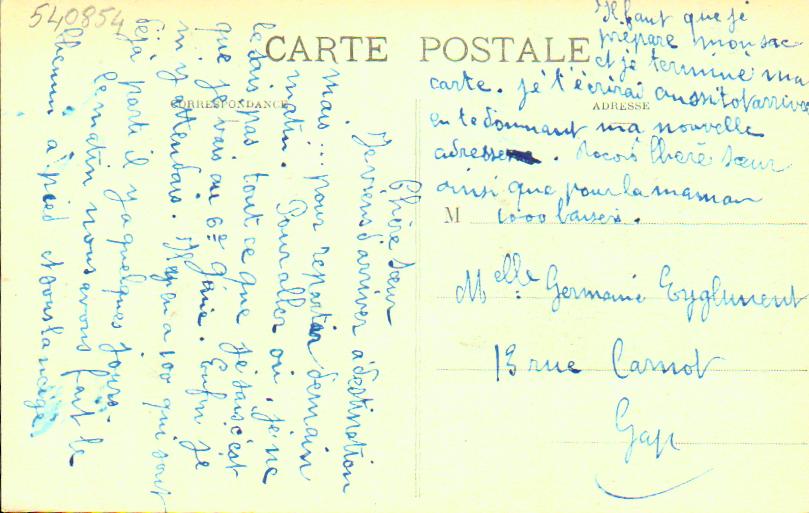 540854
CARTE POSTALE
CORRESPONDANCE
ADRESSE
Chère sœur
Je viens d'arriver à destination
mais... pour repartir demain
matin. Pour aller où, je ne
le sais pas tout ce que je sais c'est
que je vais au 6e Génie. Enfin je
m'y attendais. Il y en a 100 qui sont
déjà parti il y a quelques jours.
le matin nous avons fait le
chemin à pied et sous la neige.
Il faut que je
prépare mon sac
et je termine ma
carte. je t'écrirai aussitot arrivé
en te donnant ma nouvelle
adresse. Reçois chère sœur
ainsi que pour la maman
M 1000 baisers.
Melle Germaine Eyglument
13 rue Carnot
Gap